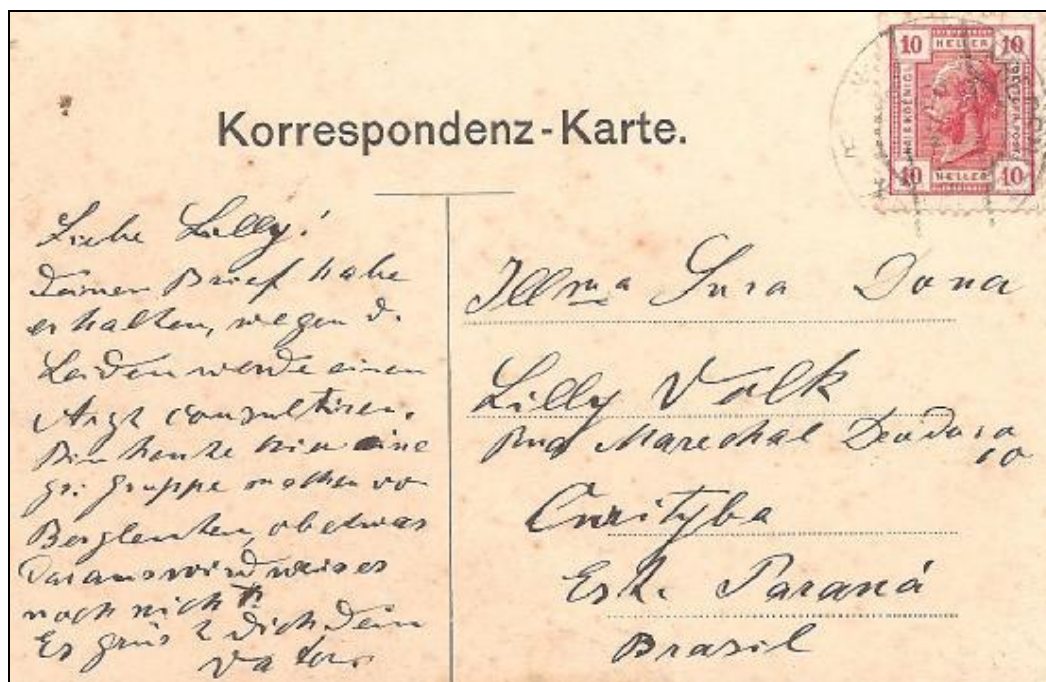 Korrespondenz-Karte.
10 HELLER 10
10 HELLER 10
Liebe Lilly!
Deinen Brief habe
erhalten, wegen d.
Leiden werde einen
Arzt consultiren.
Bin heute hier eine
gr. Gruppe machen vo
Bergleuten, ob etwas
daraus wird weis es
noch nicht.
Es grüst Dich Dein
Vater
Illma Snra Dona
Lilly Volk
Rua Marechal Deodoro
10
Curityba
Est. Paraná
Brasil